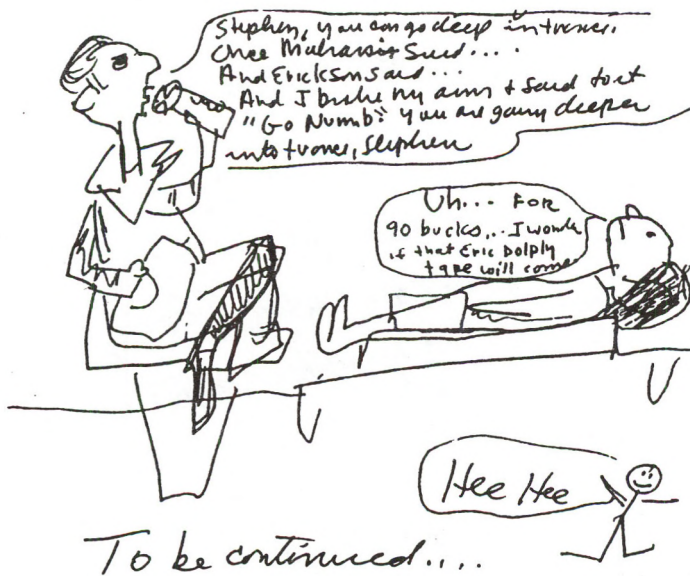 Stephen, you can go deep in trance.
Once Said....
And Erickson said...
And I broke my arm & said to it
"Go Numb" you are going deeper
into trance, Stephen
Uh... For
90 bucks... I wonder
if that Eric Dolphy
tape will come
Hee Hee
To be continued....